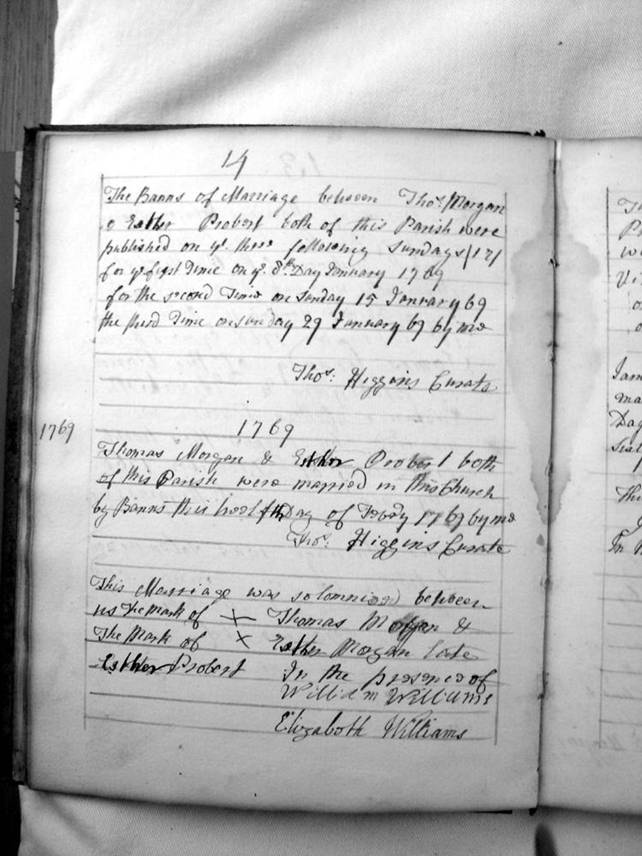 14
The Banns of Marriage between Thos. Morgan
& Esther Probert both of this Parish were
published on ye. three following Sundays
for ye first Time on ye. 8th Day January 1769
for the second Time on Sunday 15 January 69
the third Time on Sunday 29 January 69 by me
Thos: Higgins Curate
1769
1769
Thomas Morgan & Esther Probert both
of this Parish were married in this Church
by Banns this Day of Febry 1769 by me
Thos: Higgins Curate
This Marriage was solemnized between
us The Mark of X Thomas Morgan &
The Mark of X Esther Morgan late
Esther Probert In the presence of
William Williams
Elizabeth Williams